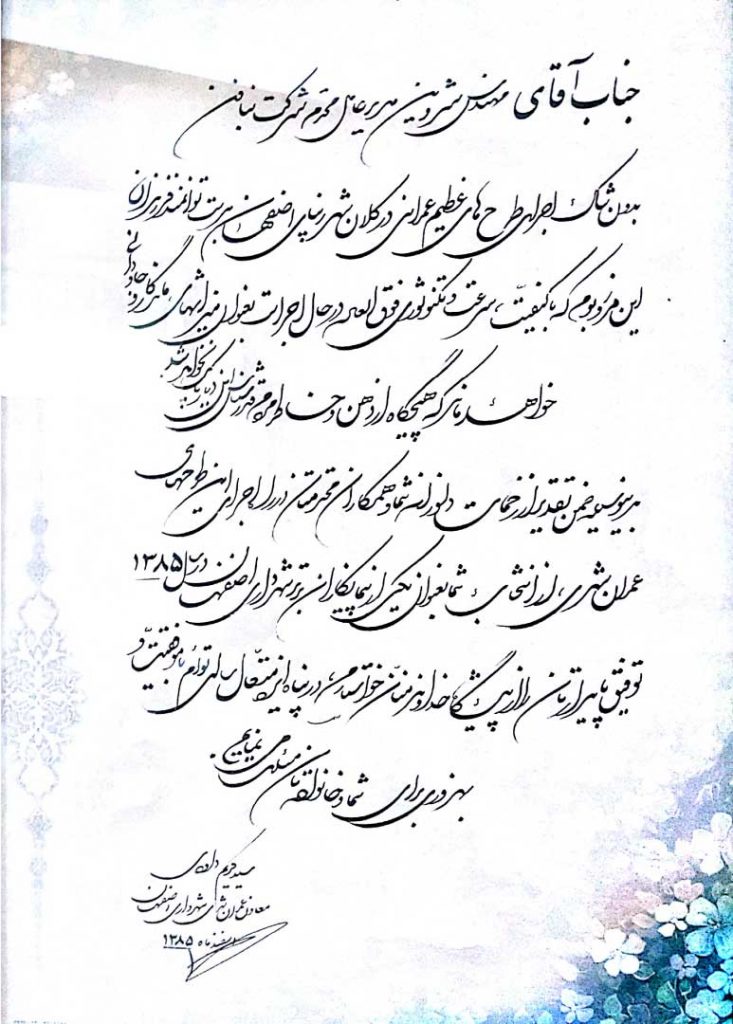 جناب آقای مهندس شروین مدیر عامل محترم شرکت بنیا فن
بدون شک اجرای طرح های عظیم عمرانی در کلان شهر زیبای اصفهان بدست توانمند فرزندان
این مرز و بوم که با کیفیت، سرعت و تکنولوژی فوق العاده در حال اجراست بعنوان میراثهای ماندگار و جاودانی
خواهند ماند که هیچگاه از ذهن و خاطر مردم قدرشناس این دیار پاک نخواهد شد
بدینوسیله ضمن تقدیر از زحمات دلسوزانه شما و همکاران محترمتان در راه اجرای این طرحهای
عمران شهری، از انتخاب شما بعنوان یکی از پیمانکاران برتر شهرداری اصفهان در سال ۱۳۸۵
توفیق پایدارتان را از پیشگاه خداوند منان خواستارم، در پناه ایزد متعال سالی توأم با موفقیت و
بهروزی برای شما و خانواده تان مسئلت می نمایم.
سید کریم داودی
معاون عمران شهری شهرداری اصفهان
اسفند ماه ۱۳۸۵